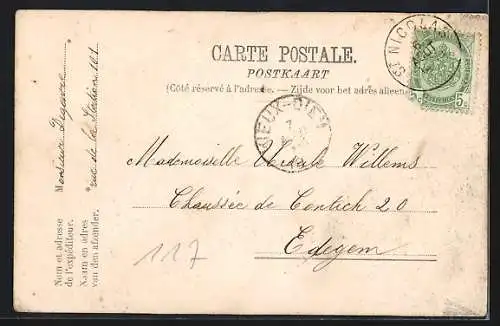 CARTE POSTALE.
POSTKAART
(Côté réservé à l'adresse. — Zijde voor het adres alleen
ST NICOLAS
5
VIEUX-DIEU
7
Mademoiselle Willems
Chaussée de Contich 20
Edegem
117
Monsieur
rue de la Station 101
Nom et adresse
de l'expéditeur.
Naam en adres
van den afzender.